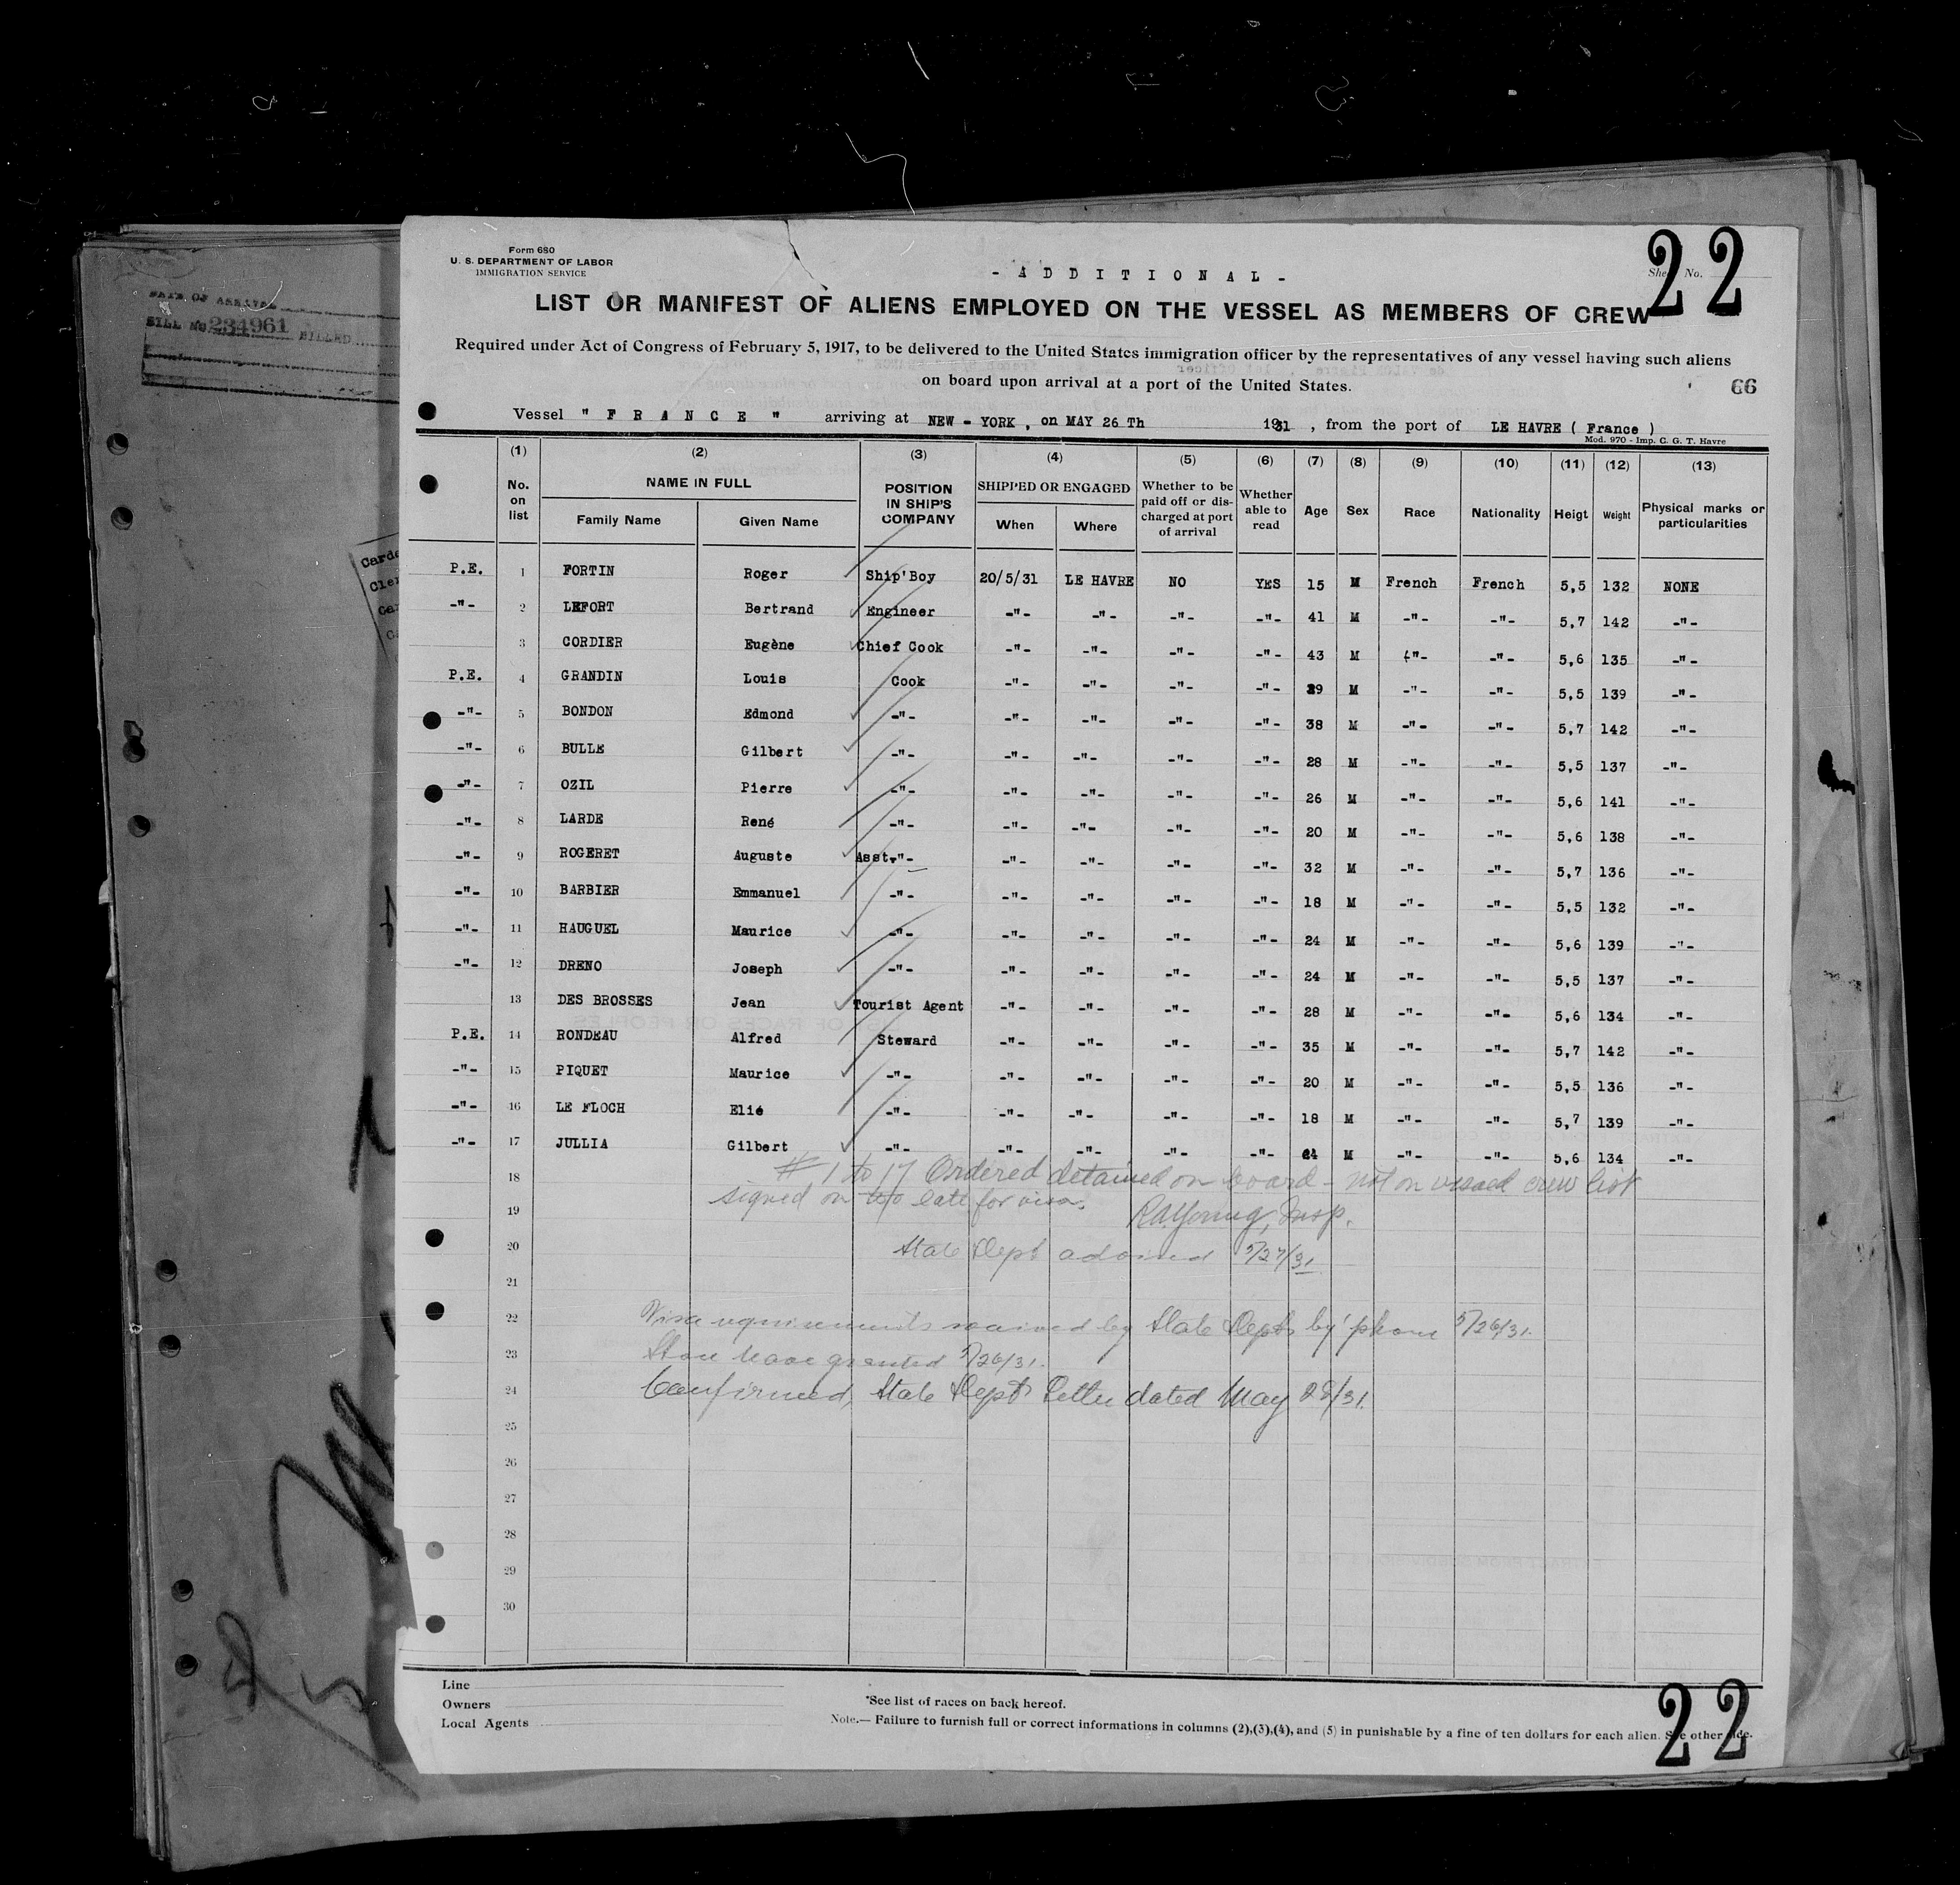 Form 680
U. S. DEPARTMENT OF LABOR
IMMIGRATION SERVICE
- A D D I T I O N A L -
Sheet No.
22
LIST OR MANIFEST OF ALIENS EMPLOYED ON THE VESSEL AS MEMBERS OF CREW
Required under Act of Congress of February 5, 1917, to be delivered to the United States immigration officer by the representatives of any vessel having such aliens
on board upon arrival at a port of the United States.
66
Vessel " F R A N C E " arriving at NEW - YORK , on MAY 26 Th 1931 , from the port of LE HAVRE ( France )
Mod. 970 - Imp. C. G. T. Havre
(1) (2) (3) (4) (5) (6) (7) (8) (9) (10) (11) (12) (13)
No. on list NAME IN FULL Family Name Given Name POSITION IN SHIP'S COMPANY SHIPPED OR ENGAGED When Where Whether to be paid off or discharged at port of arrival Whether able to read Age Sex Race Nationality Heigt Weight Physical marks or particularities
P.E. 1 FORTIN Roger Ship'Boy 20/5/31 LE HAVRE NO YES 15 M French French 5,5 132 NONE
-"- 2 LEFORT Bertrand Engineer -"- -"- -"- -"- 41 M -"- -"- 5,7 142 -"-
3 CORDIER Eugène Chief Cook -"- -"- -"- -"- 43 M -"- -"- 5,6 135 -"-
P.E. 4 GRANDIN Louis Cook -"- -"- -"- -"- 29 M -"- -"- 5,5 139 -"-
-"- 5 BONDON Edmond -"- -"- -"- -"- -"- 38 M -"- -"- 5,7 142 -"-
-"- 6 BULLE Gilbert -"- -"- -"- -"- -"- 28 M -"- -"- 5,5 137 -"-
-"- 7 OZIL Pierre -"- -"- -"- -"- -"- 26 M -"- -"- 5,6 141 -"-
-"- 8 LARDE René -"- -"- -"- -"- -"- 20 M -"- -"- 5,6 138 -"-
-"- 9 ROGERET Auguste Asst.-"- -"- -"- -"- -"- 32 M -"- -"- 5,7 136 -"-
-"- 10 BARBIER Emmanuel -"- -"- -"- -"- -"- 18 M -"- -"- 5,5 132 -"-
-"- 11 HAUGUEL Maurice -"- -"- -"- -"- -"- 24 M -"- -"- 5,6 139 -"-
-"- 12 DRENO Joseph -"- -"- -"- -"- -"- 24 M -"- -"- 5,5 137 -"-
13 DES BROSSES Jean Tourist Agent -"- -"- -"- -"- 28 M -"- -"- 5,6 134 -"-
P.E. 14 RONDEAU Alfred Steward -"- -"- -"- -"- 35 M -"- -"- 5,7 142 -"-
-"- 15 PIQUET Maurice -"- -"- -"- -"- -"- 20 M -"- -"- 5,5 136 -"-
-"- 16 LE FLOCH Elié -"- -"- -"- -"- -"- 18 M -"- -"- 5,7 139 -"-
-"- 17 JULLIA Gilbert -"- -"- -"- -"- -"- 24 M -"- -"- 5,6 134 -"-
18 # 1 to 17 Ordered detained on board - not on visaed crew list
signed on too late for visa.
19 R.A. Young, Insp.
20 State Dept advised 5/27/31
21
22 Visa requirements waived by State Dept by 'phone 5/26/31.
23 Shore leave granted 5/26/31.
24 Confirmed, State Dept Letter dated May 28/31.
25
26
27
28
29
30
Line
Owners
Local Agents
*See list of races on back hereof.
Note.— Failure to furnish full or correct informations in columns (2),(3),(4), and (5) in punishable by a fine of ten dollars for each alien. See other side.
22
DATE OF ARRIVAL
BILL NO. 234961 BILLED